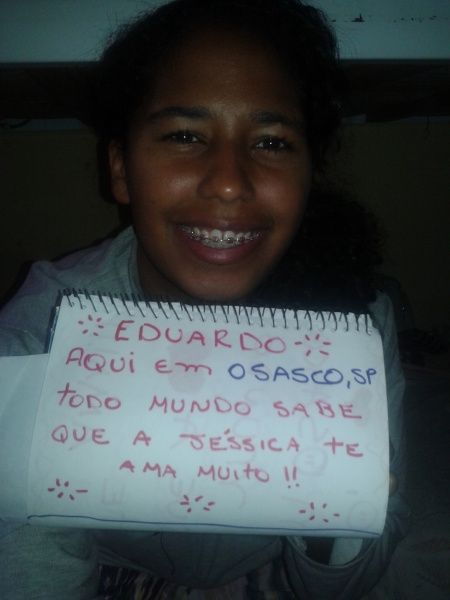 EDUARDO
AQUI Em OSASCO, SP
toDO MUNDO SABE
QUE A JÉSSICA tE
AMA MUITO !!